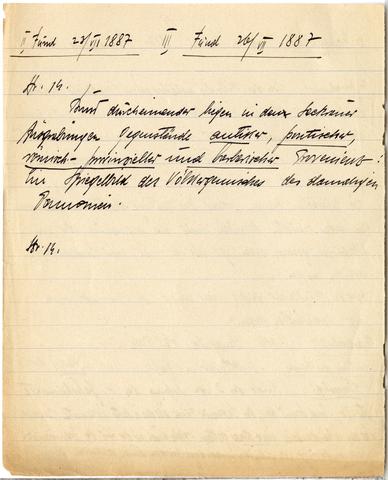 II Fund 23/VI 1887 III Fund 26/VI 1887
Nr. 14.
Bunt durcheinander liegen in den
Ausgrabungen Gegenstände antiker, pontischer,
römisch-provinzieller und barbarischer Provenienz:
Ein Spiegelbild des Völkergemisches des damaligen
Pannonien.
Nr. 14.